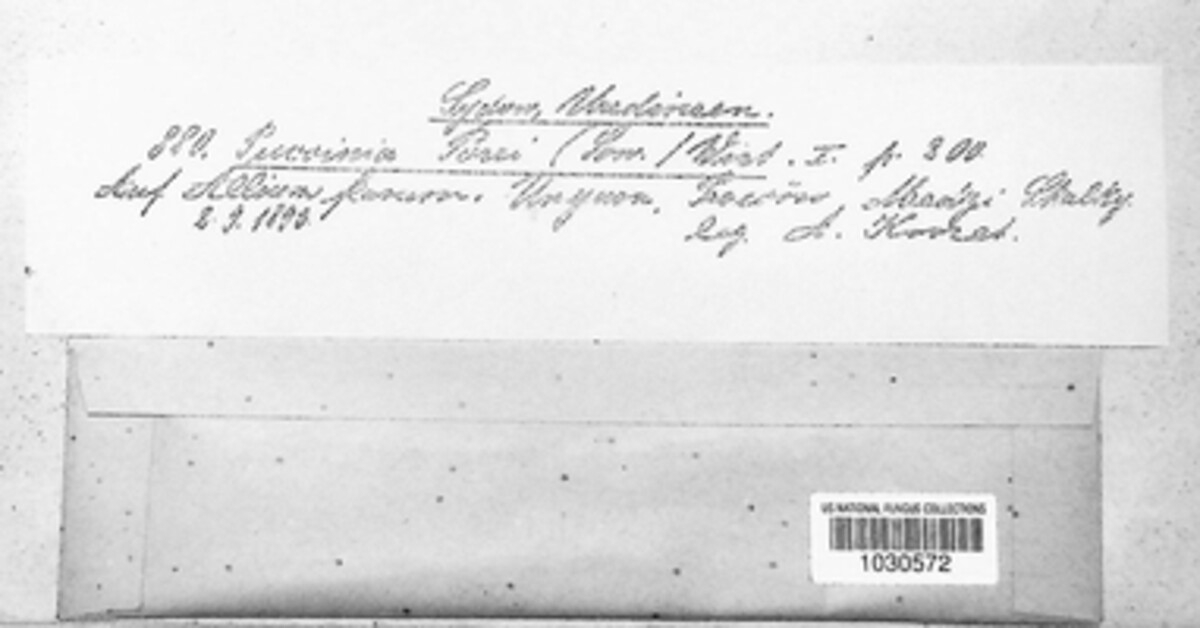 Sydow, Uredineen.
880. Puccinia Porri (Sow.) Wint. I. p. 200
Auf Allium porrum. Ungarn, Mandzi Skalky.
2. 9. 1893. leg. A. Kmet.
US NATIONAL FUNGUS COLLECTIONS
1030572